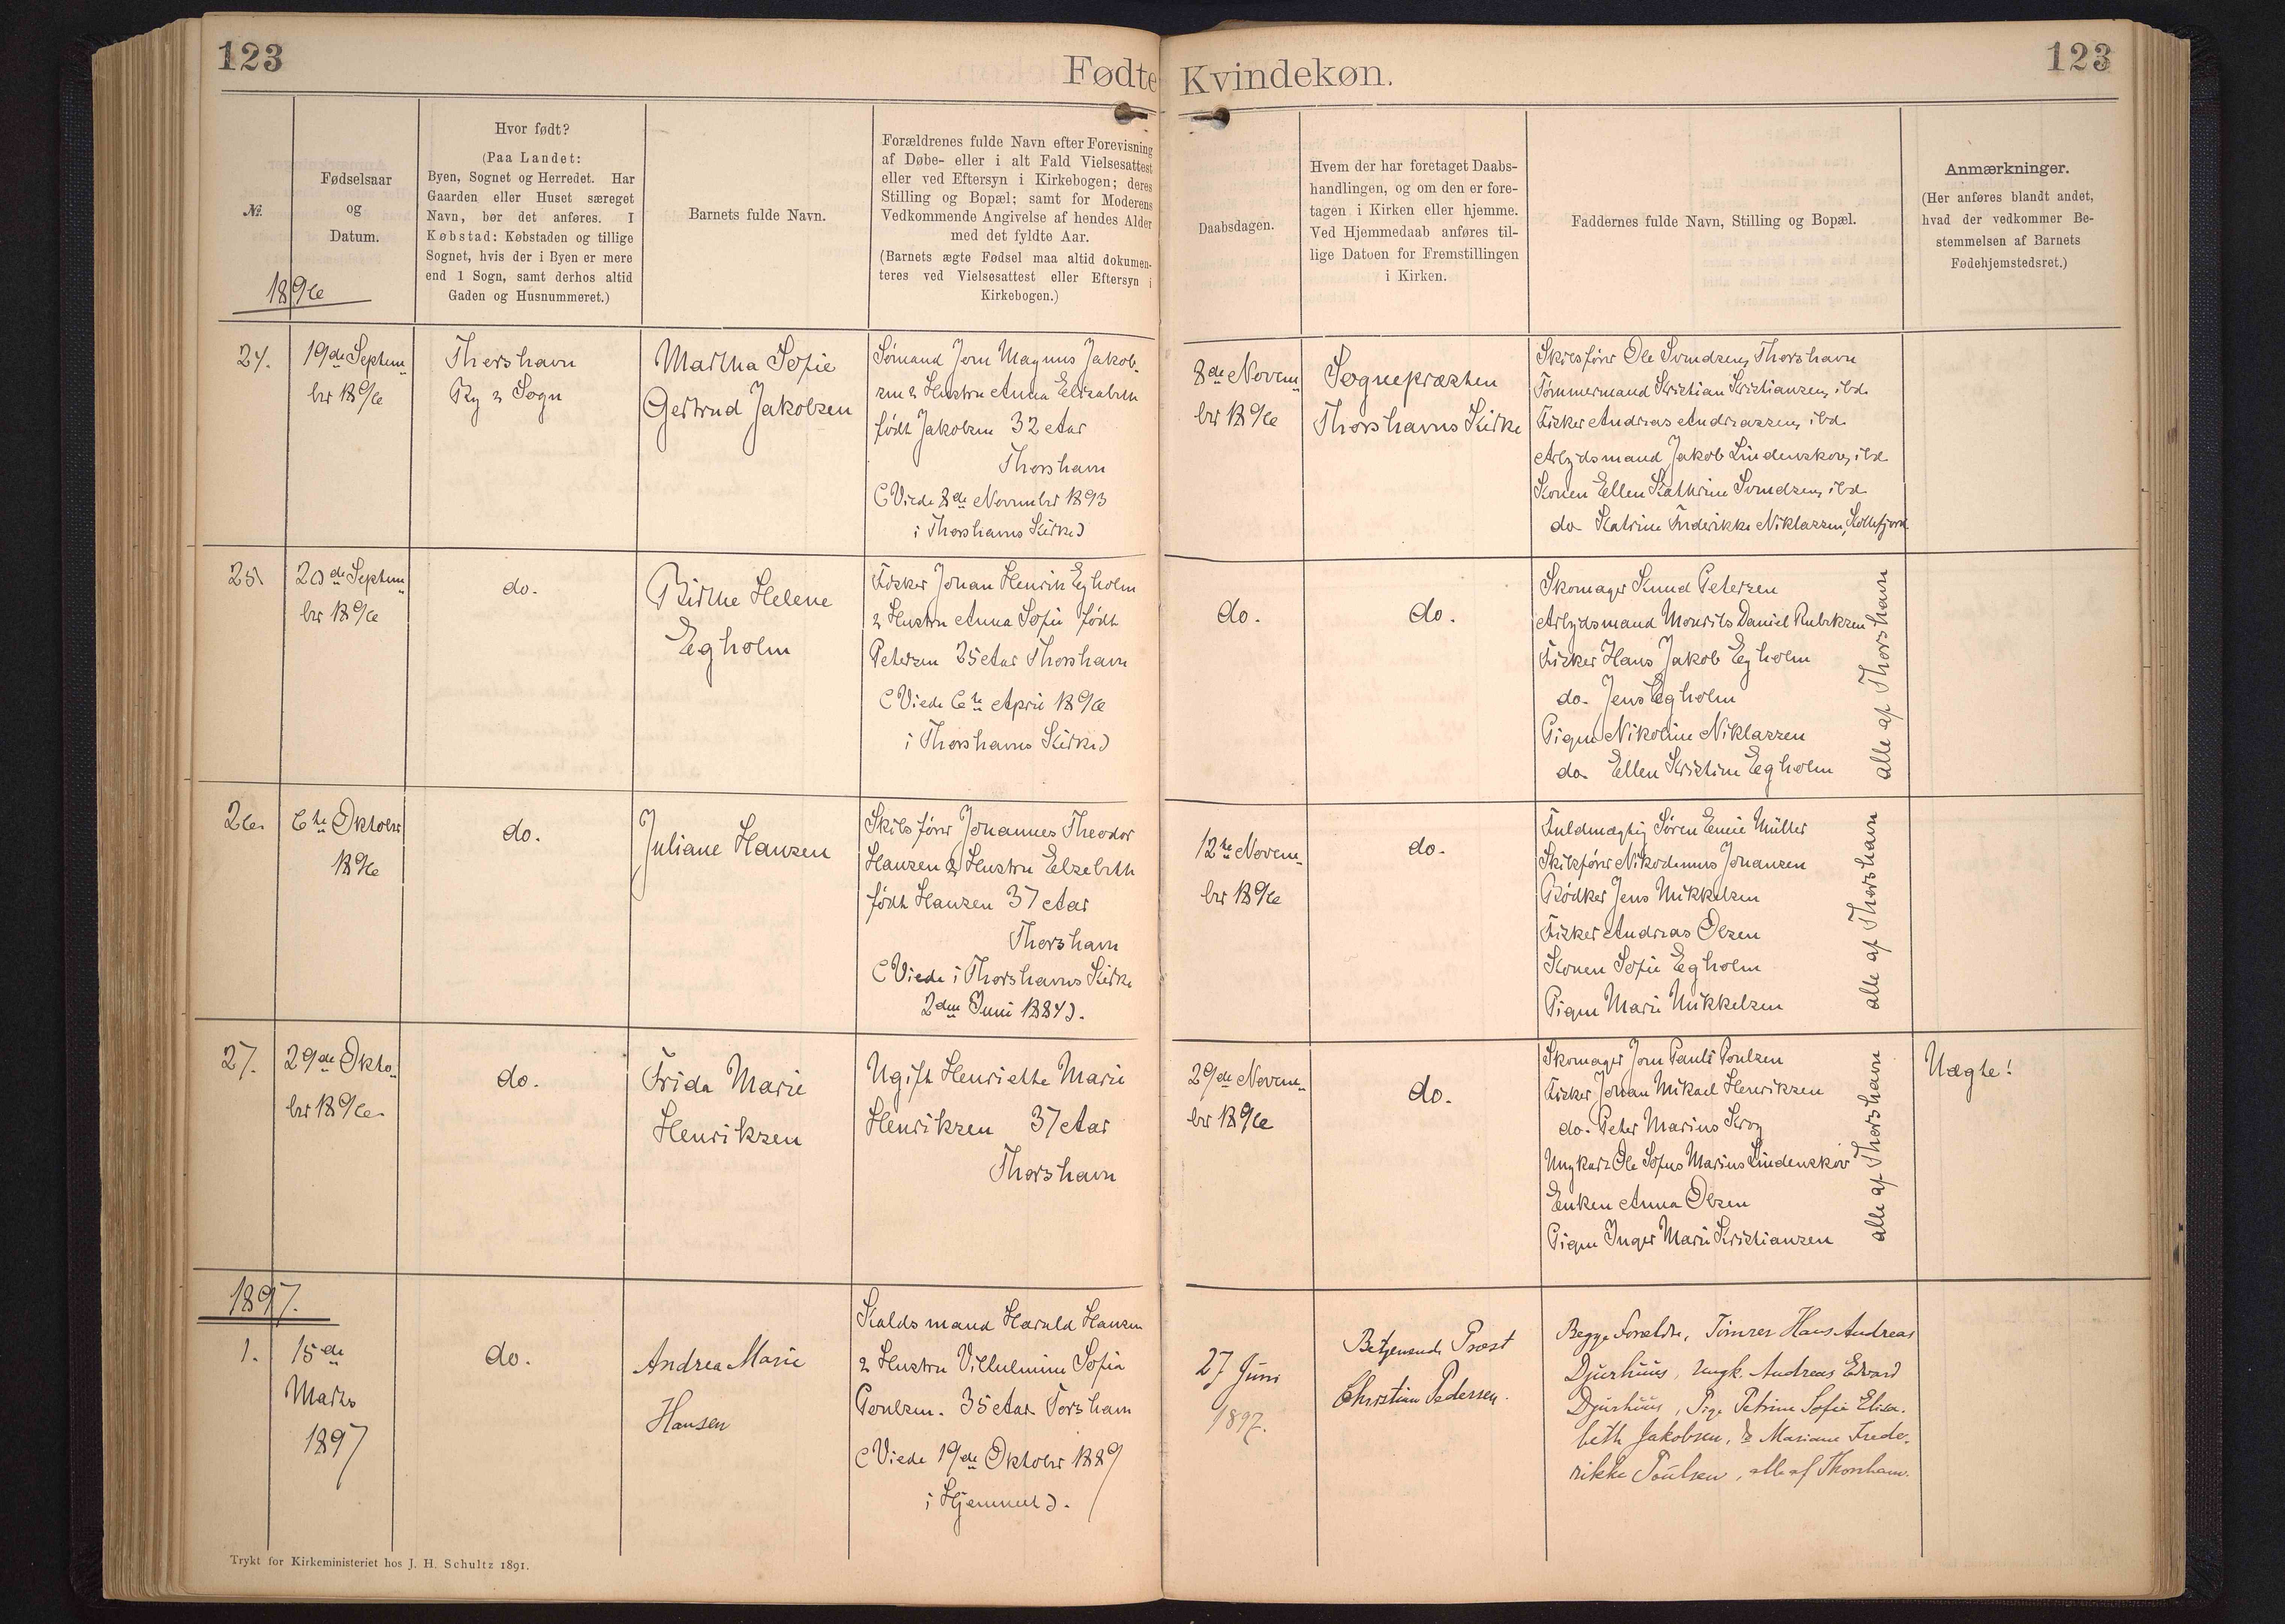 123
Fødte
Kvindekøn.
123
№.
Fødselsaar
og
Datum.
1896
Hvor født?
(Paa Landet:
Byen, Sognet og Herredet. Har
Gaarden eller Huset særeget
Navn, bør det anføres. I
Købstad: Købstaden og tillige
Sognet, hvis der i Byen er mere
end 1 Sogn, samt derhos altid
Gaden og Husnummeret.)
Barnets fulde Navn.
Forældrenes fulde Navn efter Forevisning
af Døbe- eller i alt Fald Vielsesattest
eller ved Eftersyn i Kirkebogen; deres
Stilling og Bopæl; samt for Moderens
Vedkommende Angivelse af hendes Alder
med det fyldte Aar.
(Barnets ægte Fødsel maa altid dokumen-
teres ved Vielsesattest eller Eftersyn i
Kirkebogen.)
Daabsdagen.
Hvem der har foretaget Daabs-
handlingen, og om den er fore-
tagen i Kirken eller hjemme.
Ved Hjemmedaab anføres til-
lige Datoen for Fremstillingen
i Kirken.
Faddernes fulde Navn, Stilling og Bopæl.
Anmærkninger.
(Her anføres blandt andet,
hvad der vedkommer Be-
stemmelsen af Barnets
Fødehjemstedsret.)
24.
19de Septem
ber 1896
Thorshavn
By & Sogn
Martha Sofie
Gertrud Jakobsen
Sømand Jorn Magnus Jakob-
sen & Hustru Anna Elisabeth
født Jakobsen 32 Aar
Thorshavn
(Viede 8de November 1893
i Thorshavns Kirke)
8de Novem
ber 1896
Sognepræsten
Thorshavns Kirke
Skibsfører Ole Svendsen, Thorshavn
Tømmermand Kristian Kristiansen, ibd.
Fisker Andreas Andreassen, ibd.
Arbejdsmand Jakob Lindenskov, ibd.
Konen Ellen Kathrine Svendsen, ibd.
do. Katrine Frederikke Niklassen, Kollefjord
25.
20de Septem
ber 1896
do.
Birthe Helene
Egholm
Fisker Johan Henrik Egholm
& Hustru Anna Sofie født
Petersen 25 Aar Thorshavn
(Viede 6te April 1896
i Thorshavns Kirke)
do.
do.
Skomager Knud Petersen
Arbejdsmand Mourits Daniel Rubeksen
Fisker Hans Jakob Egholm
do. Jens Egholm
Pigen Nikoline Niklassen
do. Ellen Kristine Egholm
alle af Thorshavn
26.
6te Oktober
1896
do.
Juliane Hansen
Skibsfører Johannes Theodor
Hansen & Hustru Elsebeth
født Hansen 37 Aar
Thorshavn
(Viede i Thorshavns Kirke
2den Juni 1884).
12te Novem-
ber 1896
do.
Fuldmægtig Søren Emil Müller
Skibsfører Nikodemus Johansen
Bødker Jens Mikkelsen
Fisker Andreas Olsen
Konen Sofie Egholm
Pigen Marie Mikkelsen
alle af Thorshavn
27.
29de Okto
ber 1896.
do.
Frida Marie
Henriksen
Ugift Henriette Marie
Henriksen 37 Aar
Thorshavn
29de Novem-
ber 1896
do.
Skomager Jorn Pauli Poulsen
Fisker Johan Mikael Henriksen
do. Peter Marius Krog
Ungkarl Ole Sofus Marius Lindenskov
Enken Anna Olsen
Pigen Inger Marie Kristiansen
alle af Thorshavn
Uægte!
1897.
1.
15de
Marts
1897
do.
Andrea Marie
Hansen
Kaldsmand Harald Hansen
& Hustru Vilhelmine Sofie
Poulsen. 35 Aar Torshavn
(Viede 19de Oktober 1889
i Hjemmet).
27 Juni
1897.
Betjenende Provst
Christian Pedersen.
Begge Forældre, Tømrer Hans Andreas
Djurhuus, Ungk. Andreas Edvard
Djurhuus, Pige Petrine Sofie Elisa-
beth Jakobsen, do Mariane Frede-
rikke Poulsen, alle af Thorshavn.
Trykt for Kirkeministeriet hos J. H. Schultz 1891.